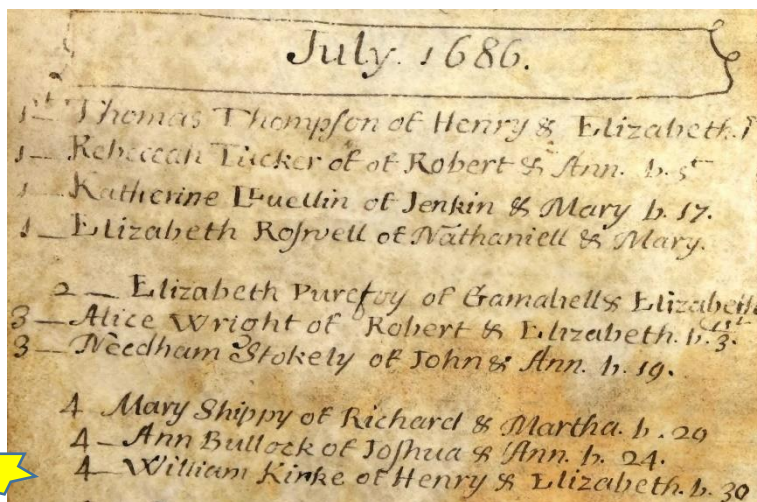 July. 1686.
1st Thomas Thompson of Henry & Elizabeth.
1 — Rebeccah Tucker of of Robert & Ann. b. 5th
1 — Katherine Lluellin of Jenkin & Mary b. 17.
1 — Elizabeth Roswell of Nathaniell & Mary.
2 — Elizabeth Purefoy of Gamaliell & Elizabeth
3 — Alice Wright of Robert & Elizabeth. b. 3.
3 — Needham Stokely of John & Ann. b. 19.
4 Mary Shippy of Richard & Martha. b. 29
4 — Ann Bullock of Joshua & Ann. b. 24.
4 — William Kirke of Henry & Elizabeth. b. 30